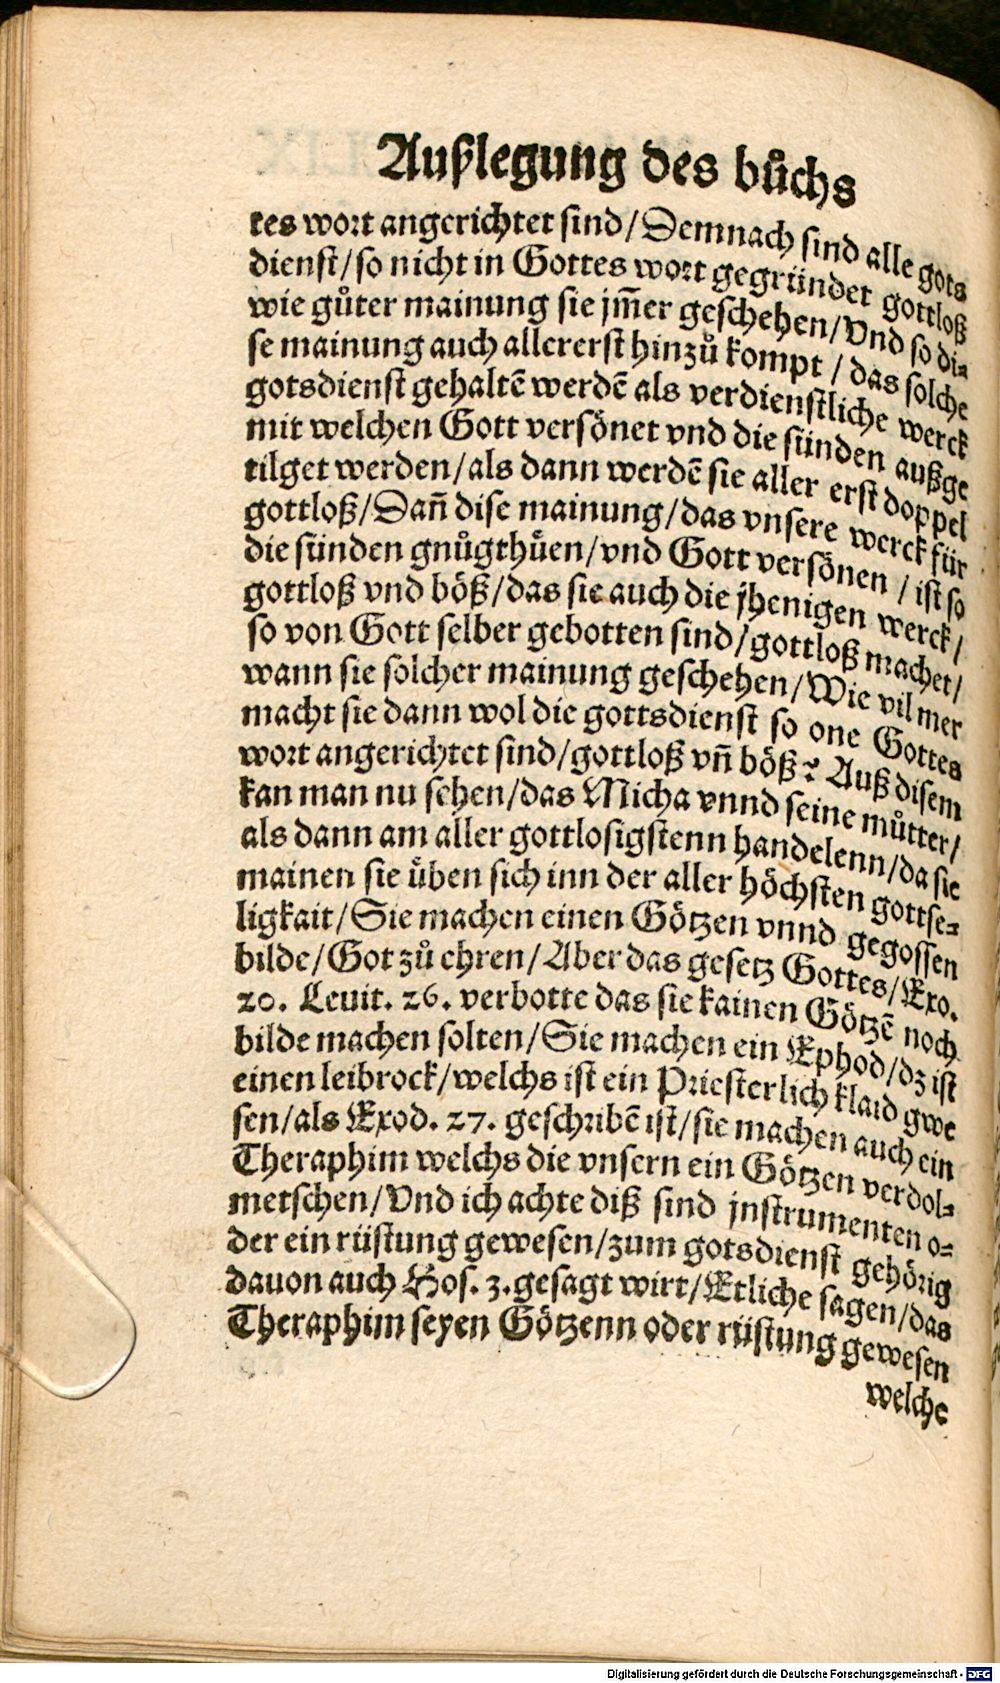 Außlegung des bůchs
tes wort angerichtet sind/Demnach sind alle gots
dienst/so nicht in Gottes wort gegründet gottloß
wie gůter mainung sie jm̃er geschehen/Vnd so di-
se mainung auch allererst hinzů kompt/das solche
gotsdienst gehaltẽ werdẽ als verdienstliche werck
mit welchen Gott versönet vnd die sünden außge
tilget werden/als dann werdẽ sie aller erst doppel
gottloß/Dañ dise mainung/das vnsere werck für
die sünden gnůgthüen/vnd Gott versönen/ist so
gottloß vnd böß/das sie auch die jhenigen werck/
so von Gott selber gebotten sind/gottloß machet/
wann sie solcher mainung geschehen/Wie vil mer
macht sie dann wol die gottsdienst so one Gottes
wort angerichtet sind/gottloß vñ böß? Auß disem
kan man nu sehen/das Micha vnnd seine můtter/
als dann am aller gottlosigstenn handelenn/da sie
mainen sie üben sich inn der aller höchsten gottse-
ligkait/Sie machen einen Götzen vnnd gegossen
bilde/Got zů ehren/Aber das gesetz Gottes/Exo.
20. Leuit. 26. verbotte das sie kainen Götzẽ noch
bilde machen solten/Sie machen ein Ephod/dz ist
einen leibrock/welchs ist ein Priesterlich klaid gwe
sen/als Exod. 27. geschribẽ ist/sie machen auch ein
Theraphim welchs die vnsern ein Götzen verdol-
metschen/Vnd ich achte diß sind jnstrumenten o-
der ein rüstung gewesen/zum gotsdienst gehörig
dauon auch Hos. 3. gesagt wirt/Etliche sagen/das
Theraphim seyen Götzenn oder rüstung gewesen
welche
Digitalisierung gefördert durch die Deutsche Forschungsgemeinschaft - DFG